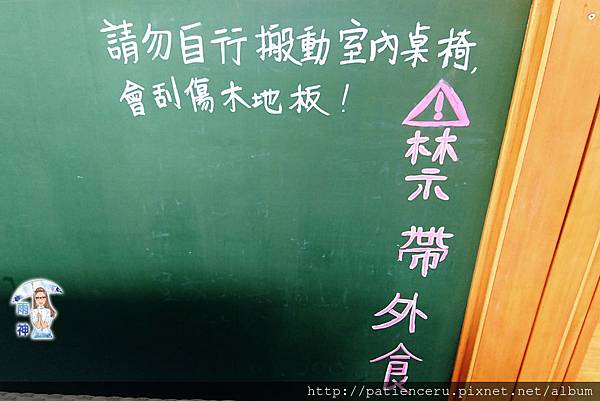 請勿自行搬動室內桌椅,
會刮傷木地板!
禁帶外食
雨神
http://patienceru.pixnet.net/album